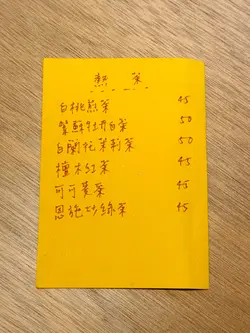 熱 茶
白桃煎茶 45
紫蘇牡丹白茶 50
白蘭花茉莉茶 50
檀木紅茶 45
可可裏茶 45
恩施炒綠茶 45